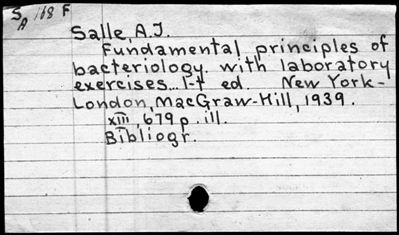 SA 168 F
Salle, A.J.
Fundamental principles of
bacteriology with laboratory
exercises... 1-t ed. New York-
London, MacGraw-Hill, 1939.
XIII, 679 p. ill.
Bibliogr.